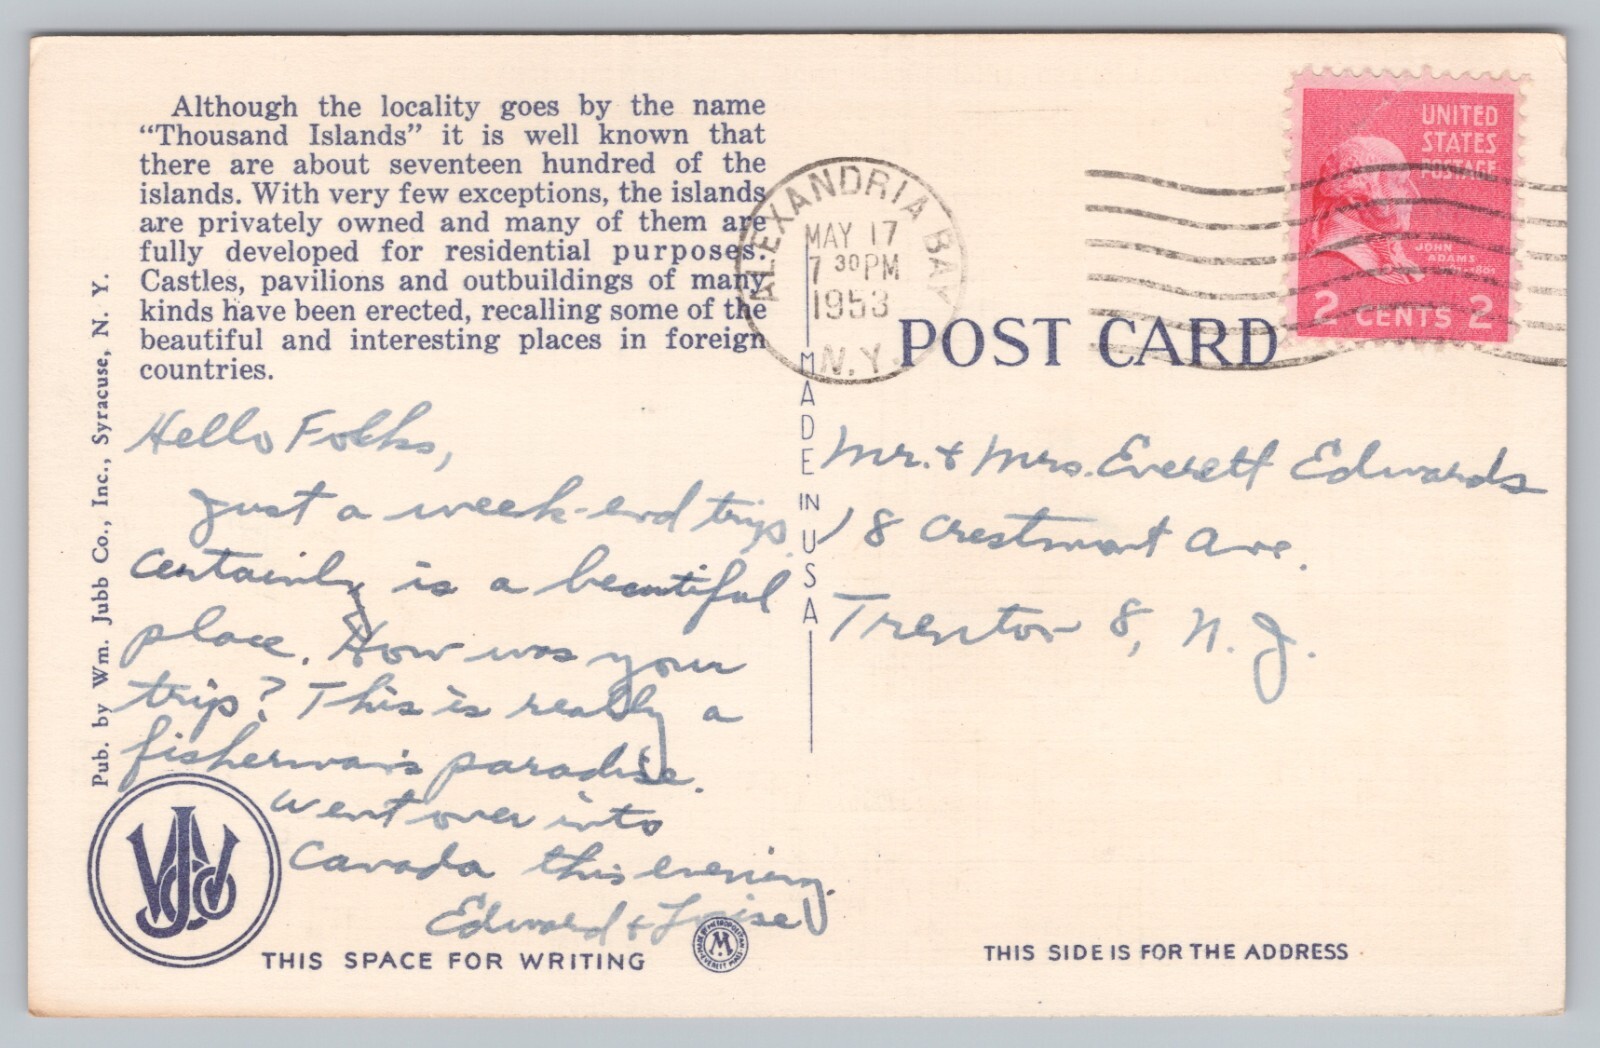 Although the locality goes by the name
“Thousand Islands” it is well known that
there are about seventeen hundred of the
islands. With very few exceptions, the islands
are privately owned and many of them are
fully developed for residential purposes.
Castles, pavilions and outbuildings of many
kinds have been erected, recalling some of the
beautiful and interesting places in foreign
countries.
Pub. by Wm. Jubb Co., Inc., Syracuse, N. Y.
Hello Folks,
Just a week-end trip.
Certainly is a beautiful
place. How was your
trip? This is really a
fisherman's paradise.
Went over into
Canada this evening.
Edward & Louise
THIS SPACE FOR WRITING
MADE IN USA
ALEXANDRIA BAY
MAY 17
7 30 PM
1953
N.Y.
POST CARD
UNITED
STATES
POSTAGE
JOHN
ADAMS
2 CENTS 2
Mr. & Mrs. Everett Edwards
18 Crestmont Ave.
Trenton 8, N. J.
THIS SIDE IS FOR THE ADDRESS